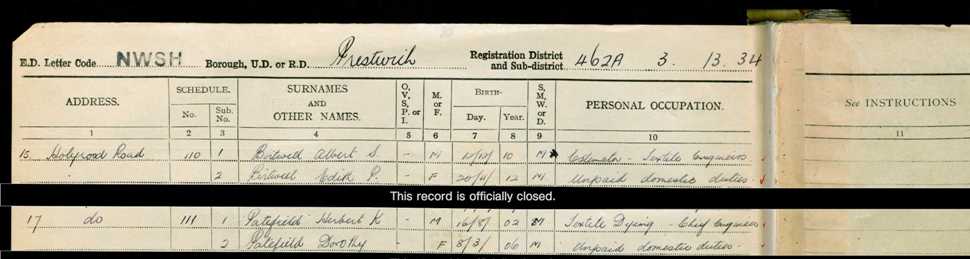 E.D. Letter Code NWSH Borough, U.D. or R.D. Prestwich Registration District and Sub-district 462A 3. 13. 34
ADDRESS. SCHEDULE. No. Sub. No. SURNAMES AND OTHER NAMES. O, V, S, P. or I. M. or F. BIRTH- Day. Year. S, M, W. or D. PERSONAL OCCUPATION. See INSTRUCTIONS
1 2 3 4 5 6 7 8 9 10 11
15 Holyrood Road 110 1 Birtwell Albert S. - M 10 M Estimator - Textile Engineers
" 2 Birtwell Edith P. - F 20/4/ 12 M Unpaid domestic duties -
This record is officially closed.
17 do 111 1 Patefield Herbert K - M 16/8/ 02 M Textile Dyeing - Chief Engineer
2 Patefield Dorothy F 8/3/ 06 M Unpaid domestic duties -